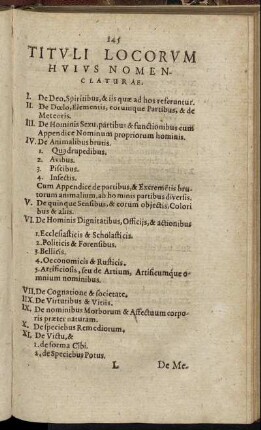 145
TITVLI LOCORVM
HVIVS NOMEN-
CLATVRAE.
I. De Deo, Spiritibus, & iis quæ ad hos referuntur.
II. De Cœlo, Elementis, eorumque Partibus, & de
Meteoris.
III. De Hominis Sexu, partibus & functionibus cum
Appendice Nominum propriorum hominis.
IV. De Animalibus brutis.
1. Quadrupedibus.
2. Avibus.
3. Piscibus.
4. Insectis.
Cum Appendice de partibus, & Extremitis bru-
torum animalium, ab hominis partibus diversis.
V. De quinque Sensibus, & eorum objectis, Colori
bus & aliis.
VI. De Hominis Dignitatibus, Officijs, & actionibus
1. Ecclesiasticis & Scholasticis.
2. Politicis & Forensibus.
3. Bellicis.
4. Oeconomicis & Rusticis.
5. Artificiosis, seu de Artium, Artificumque o-
mnium nominibus.
VII. De Cognatione & societate.
IIX. De Virtutibus & Vitiis.
IX. De nominibus Morborum & Affectuum corpo-
ris præter naturam.
X. De speciebus Remediorum.
XI. De Victu, &
1. de forma Cibi.
2. de Speciebus Potus.
L De Me-